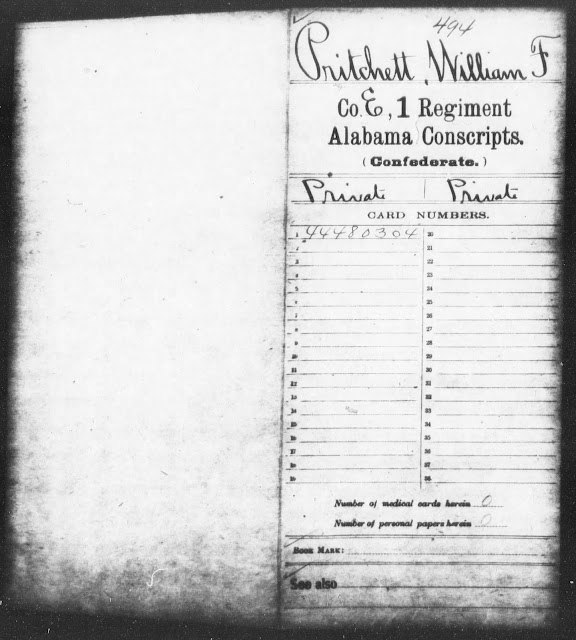 494
Pritchett, William F
Co. E, 1 Regiment
Alabama Conscripts.
(Confederate.)
Private | Private
CARD NUMBERS.
1 44480304 20
2 21
3 22
4 23
5 24
6 25
7 26
8 27
9 28
10 29
11 30
12 31
13 32
14 33
15 34
16 35
17 36
18 37
19 38
Number of medical cards herein 0
Number of personal papers herein 0
BOOK MARK:
See also